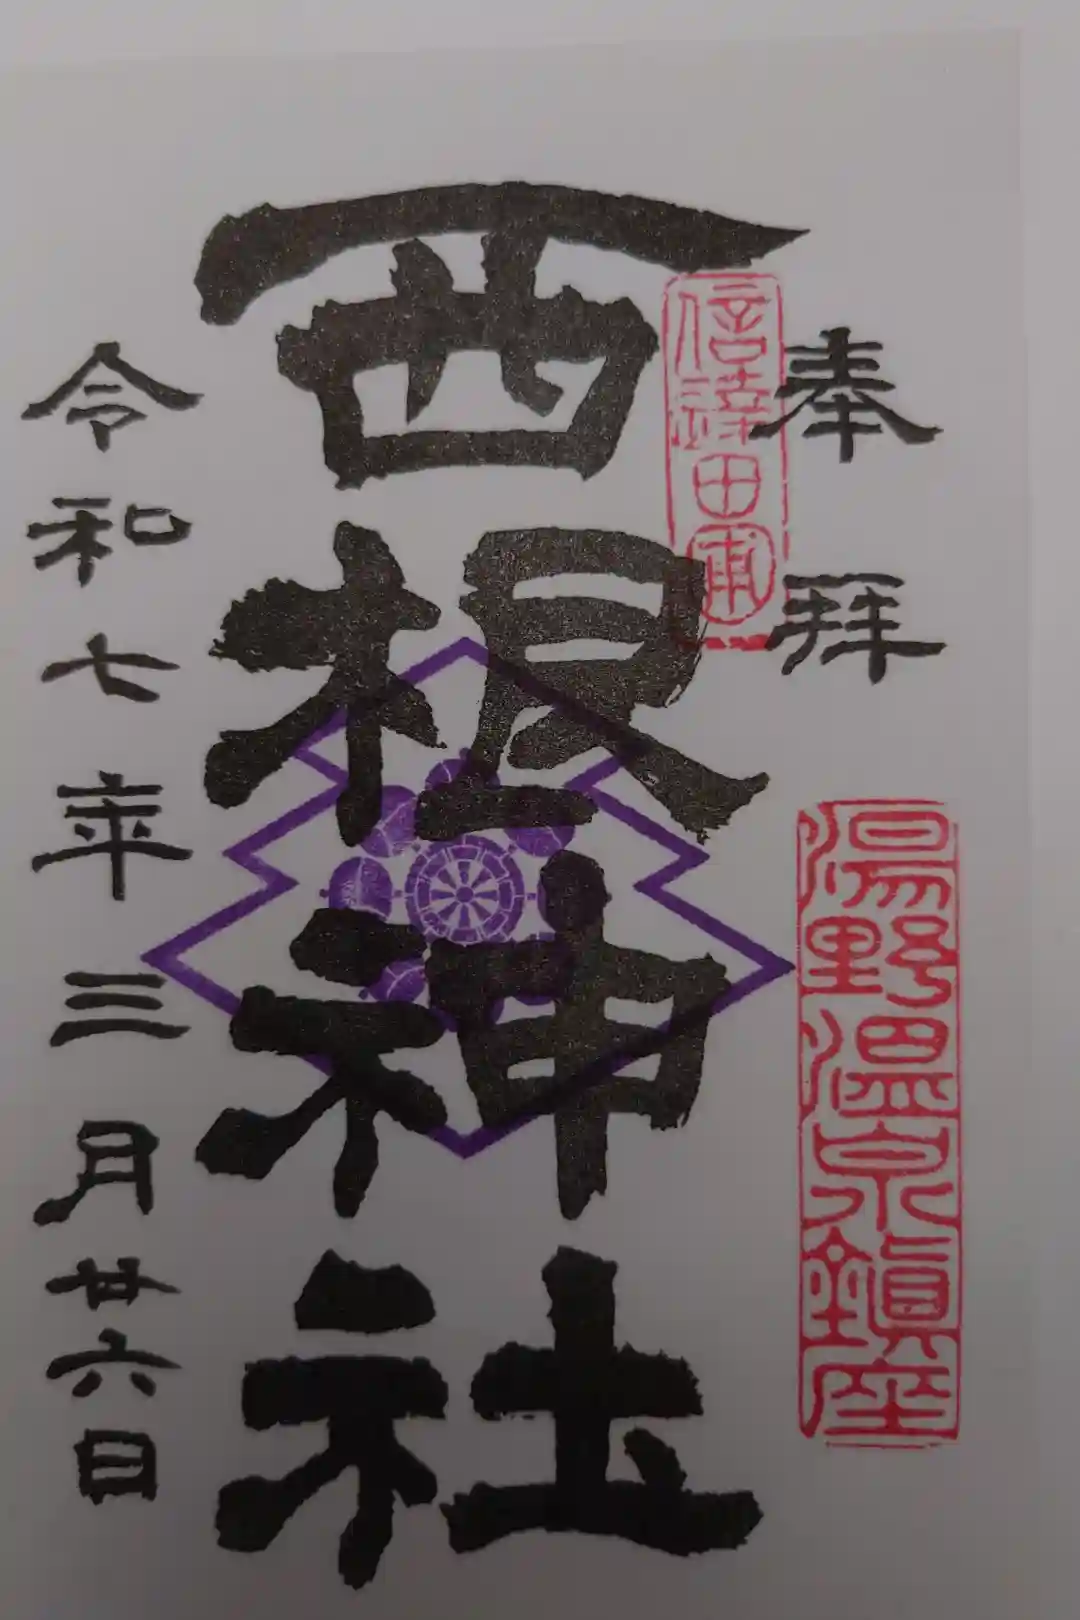 奉拜
湯野温泉鎮座
西根神社
令和七年三月廿六日